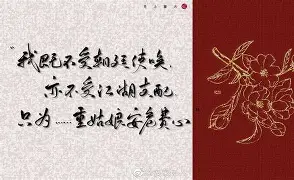 我既不受朝廷使唤，
亦不受江湖支配，
只为……重姑娘安危费心